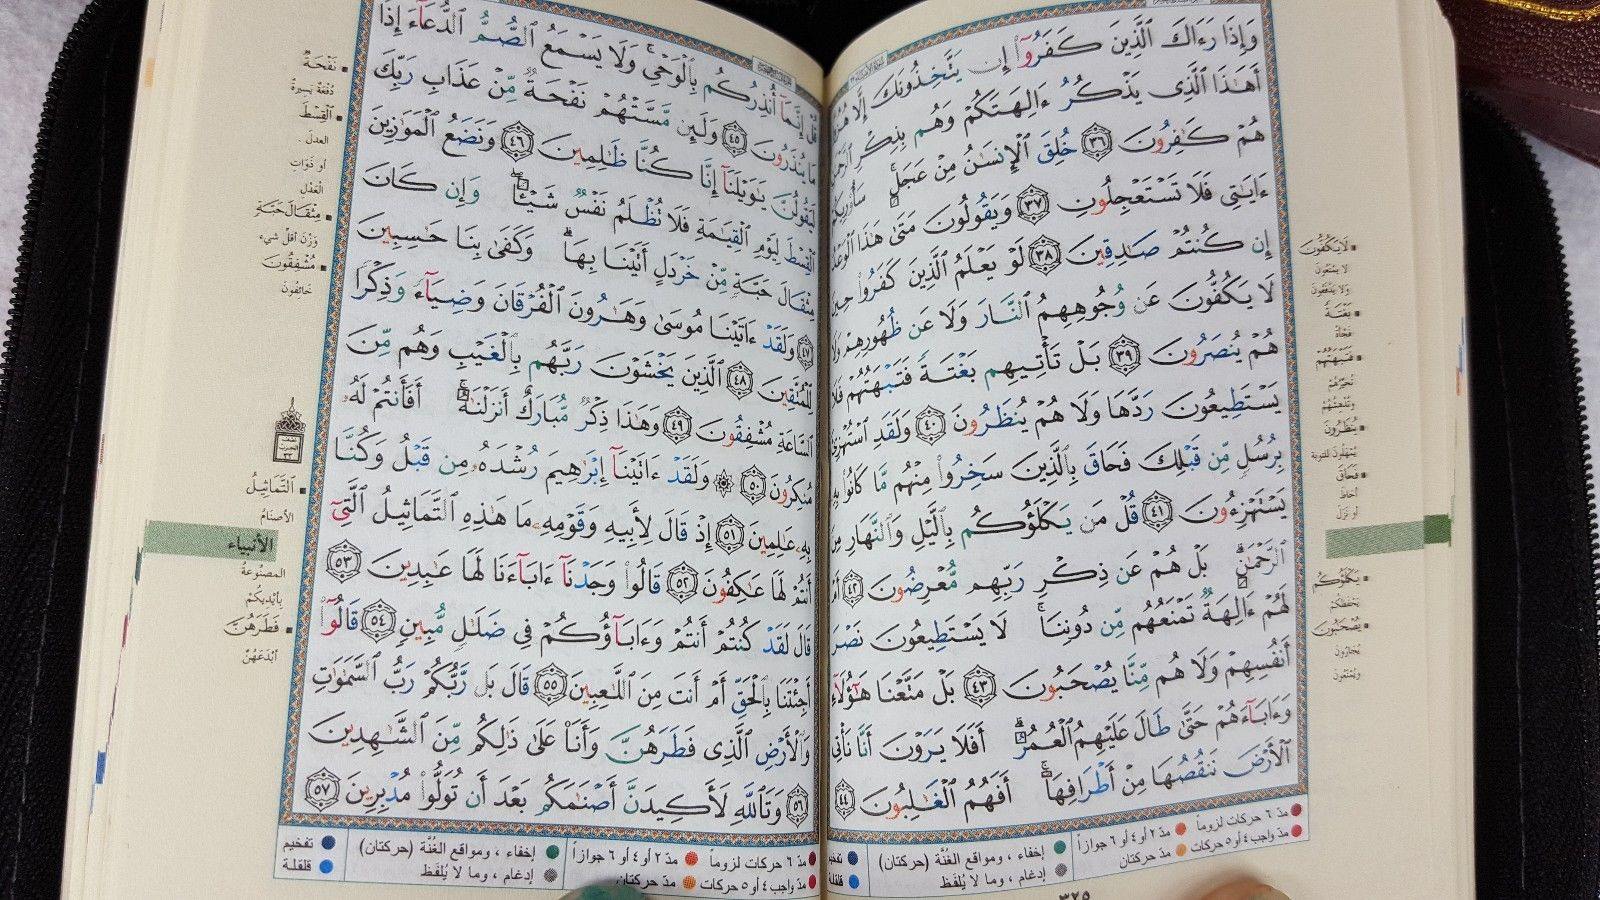 وَإِذَا رَءَاكَ الَّذِينَ كَفَرُوٓا۟ إِن يَتَّخِذُونَكَ إِلَّا
أَهَٰذَا الَّذِى يَذْكُرُ ءَالِهَتَكُمْ وَهُم بِذِكْرِ
هُمْ كَٰفِرُونَ ٣٦ خُلِقَ الْإِنسَٰنُ مِنْ عَجَلٍ سَأُو۟رِيكُمْ
ءَايَٰتِى فَلَا تَسْتَعْجِلُونِ ٣٧ وَيَقُولُونَ مَتَىٰ هَٰذَا الْوَعْدُ
إِن كُنتُمْ صَٰدِقِينَ ٣٨ لَوْ يَعْلَمُ الَّذِينَ كَفَرُوا۟ حِينَ
لَا يَكُفُّونَ عَن وُجُوهِهِمُ النَّارَ وَلَا عَن ظُهُورِهِمْ وَلَا
هُمْ يُنصَرُونَ ٣٩ بَلْ تَأْتِيهِم بَغْتَةً فَتَبْهَتُهُمْ فَلَا
يَسْتَطِيعُونَ رَدَّهَا وَلَا هُمْ يُنظَرُونَ ٤٠ وَلَقَدِ اسْتُهْزِئَ
بِرُسُلٍ مِّن قَبْلِكَ فَحَاقَ بِالَّذِينَ سَخِرُوا۟ مِنْهُم مَّا كَانُوا۟ بِهِۦ
يَسْتَهْزِءُونَ ٤١ قُلْ مَن يَكْلَؤُكُم بِالَّيْلِ وَالنَّهَارِ مِنَ
الرَّحْمَٰنِ بَلْ هُمْ عَن ذِكْرِ رَبِّهِم مُّعْرِضُونَ ٤٢ أَمْ
لَهُمْ ءَالِهَةٌ تَمْنَعُهُم مِّن دُونِنَا لَا يَسْتَطِيعُونَ نَصْرَ
أَنفُسِهِمْ وَلَا هُم مِّنَّا يُصْحَبُونَ ٤٣ بَلْ مَتَّعْنَا هَٰٓؤُلَآءِ
وَءَابَآءَهُمْ حَتَّىٰ طَالَ عَلَيْهِمُ الْعُمُرُ أَفَلَا يَرَوْنَ أَنَّا نَأْتِى
الْأَرْضَ نَنقُصُهَا مِنْ أَطْرَافِهَا أَفَهُمُ الْغَٰلِبُونَ ٤٤
لَا يَكُفُّونَ
لا يمنعون
ولا يدفعون
بَغْتَةً
فجأة
فَتَبْهَتُهُمْ
تحيرهم
وتدهشهم
يُنظَرُونَ
يمهلون للتوبة
فَحَاقَ
أحاط
أو نزل
يَكْلَؤُكُم
يحفظكم
يُصْحَبُونَ
يجارون
ويمنعون
مدّ ٦ حركات لزوماً
مدّ ٢ أو ٤ أو ٦ جوازاً
مدّ واجب ٤ أو ٥ حركات
مدّ حركتان
إخفاء ، ومواقع الغُنَّة (حركتان)
إدغام ، وما لا يُلفَظ
تفخيم
قلقلة
٣٢٥
قُلْ إِنَّمَآ أُنذِرُكُم بِالْوَحْىِ وَلَا يَسْمَعُ الصُّمُّ الدُّعَآءَ إِذَا
مَا يُنذَرُونَ ٤٥ وَلَئِن مَّسَّتْهُمْ نَفْحَةٌ مِّنْ عَذَابِ رَبِّكَ
لَيَقُولُنَّ يَٰوَيْلَنَآ إِنَّا كُنَّا ظَٰلِمِينَ ٤٦ وَنَضَعُ الْمَوَٰزِينَ
الْقِسْطَ لِيَوْمِ الْقِيَٰمَةِ فَلَا تُظْلَمُ نَفْسٌ شَيْـًٔا وَإِن كَانَ
مِثْقَالَ حَبَّةٍ مِّنْ خَرْدَلٍ أَتَيْنَا بِهَا وَكَفَىٰ بِنَا حَٰسِبِينَ
٤٧ وَلَقَدْ ءَاتَيْنَا مُوسَىٰ وَهَٰرُونَ الْفُرْقَانَ وَضِيَآءً وَذِكْرًا
لِّلْمُتَّقِينَ ٤٨ الَّذِينَ يَخْشَوْنَ رَبَّهُم بِالْغَيْبِ وَهُم مِّنَ
السَّاعَةِ مُشْفِقُونَ ٤٩ وَهَٰذَا ذِكْرٌ مُّبَارَكٌ أَنزَلْنَٰهُ أَفَأَنتُمْ لَهُۥ
مُنكِرُونَ ٥٠ ۞ وَلَقَدْ ءَاتَيْنَآ إِبْرَٰهِيمَ رُشْدَهُۥ مِن قَبْلُ وَكُنَّا
بِهِۦ عَٰلِمِينَ ٥١ إِذْ قَالَ لِأَبِيهِ وَقَوْمِهِۦ مَا هَٰذِهِ التَّمَاثِيلُ الَّتِىٓ
أَنتُمْ لَهَا عَٰكِفُونَ ٥٢ قَالُوا۟ وَجَدْنَآ ءَابَآءَنَا لَهَا عَٰبِدِينَ ٥٣
قَالَ لَقَدْ كُنتُمْ أَنتُمْ وَءَابَآؤُكُمْ فِى ضَلَٰلٍ مُّبِينٍ ٥٤ قَالُوٓا۟
أَجِئْتَنَا بِالْحَقِّ أَمْ أَنتَ مِنَ اللَّٰعِبِينَ ٥٥ قَالَ بَل رَّبُّكُمْ رَبُّ السَّمَٰوَٰتِ
وَالْأَرْضِ الَّذِى فَطَرَهُنَّ وَأَنَا۠ عَلَىٰ ذَٰلِكُم مِّنَ الشَّٰهِدِينَ
٥٦ وَتَاللَّهِ لَأَكِيدَنَّ أَصْنَٰمَكُم بَعْدَ أَن تُوَلُّوا۟ مُدْبِرِينَ ٥٧
نَفْحَةٌ
دفعة يسيرة
الْقِسْطَ
العدل .
أو ذوات
العدل
مِثْقَالَ حَبَّةٍ
وزن أقل شيء
مُشْفِقُونَ
خائفون
نصف
الحزب
٣٣
التَّمَاثِيلُ
الأصنام
الأنبياء
المصنوعة
بأيديكم
فَطَرَهُنَّ
أبدعهن
مدّ ٦ حركات لزوماً
مدّ ٢ أو ٤ أو ٦ جوازاً
مدّ واجب ٤ أو ٥ حركات
مدّ حركتان
إخفاء ، ومواقع الغُنَّة (حركتان)
إدغام ، وما لا يُلفَظ
تفخيم
قلقلة